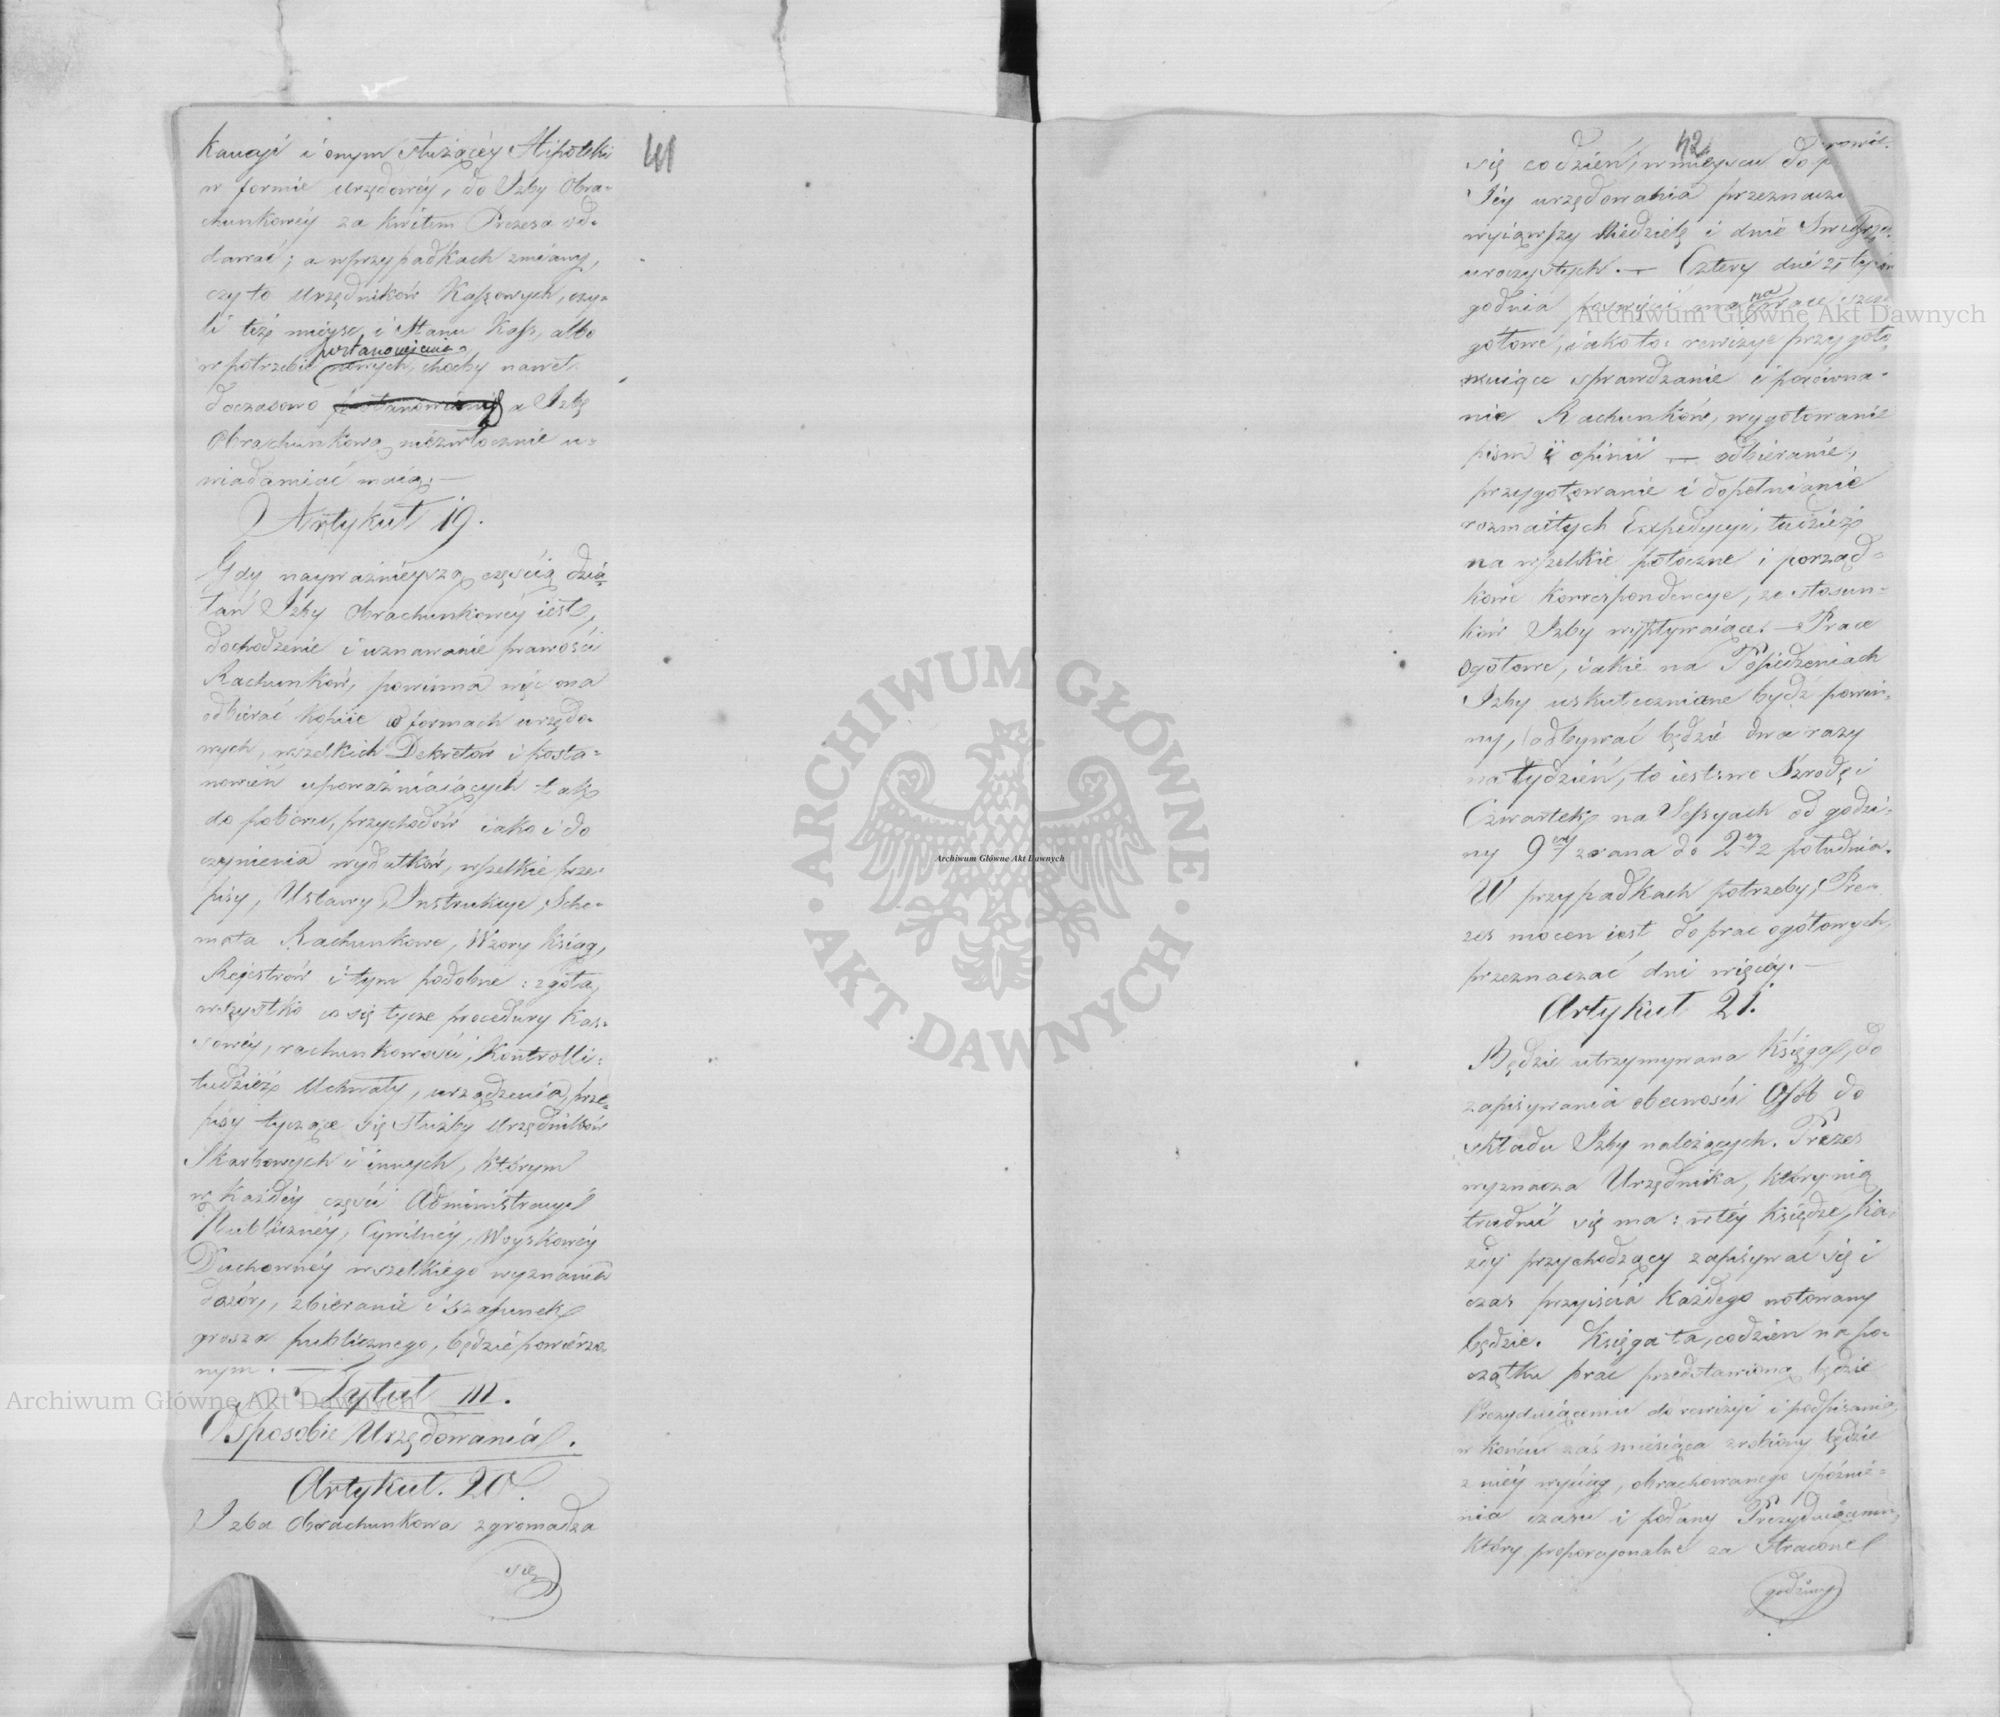 41
kaucyi i onym służącéy Hipoteki
w formie urzędowéy, do Izby Obra-
chunkowéy za kwitem Prezesa od-
dawać; a w przypadkach zmiany,
czyto Urzędników Kassowych, czy-
li też mieysc i Stanu Kass, albo
postanowienia
w potrzebie nowych, choćby nawet
doczasowo a Izbę
Obrachunkową niezwłocznie u-
wiadamiać maią. —
Artykuł 19.
Gdy nayważnieyszą częścią dzia-
łań Izby Obrachunkowéy iest,
dochodzenie i uznawanie prawości
Rachunków, powinna więc ona
odbierać kopiie w formach urzędo-
wych, wszelkich Dekretów i posta-
nowień upoważniaiących tak
do poboru, przychodów iako i do
czynienia wydatków, wszelkie prze-
pisy, Ustawy, Instrukcye, Sche-
mata Rachunkowe, Wzory Ksiąg,
Regestrów i tym podobne: zgoła,
wszystko co się tycze procedury Kas-
sowéy, rachunkowości, Kontrolli:
tudzież Uchwały, urządzenia, prze-
pisy tyczące się służby Urzędników
Skarbowych i innych, którym
w każdéy części Administracyi
Publicznéy, Cywilnéy, Woyskowéy
Duchownéy wszelkiego wyznania
dozór, zbieranie i szafunek
grosza publicznego, będzie powierzo-
nym. —
Tytuł III.
O sposobie Urzędowania.
Artykuł. 20.
Izba Obrachunkowa zgromadza
się
42
się codzień, w mieyscu do
Iéy urzędowania przeznacz
wyiąwszy Niedzielę i dnie
uroczystych. — Cztery dni z ty-
godnia na prace
gółowe, iako to: rewizye przygoto-
wuiące sprawdzanie i porówna-
nie Rachunków, wygotowanie
pism i opinii — odbieranie,
przygotowanie i dopełnianie
rozmaitych Expedycyi, tudzież
na wszelkie potoczne i porząd-
kowe korrespondencye, ze stosun-
ków Izby wypływaiące. — Prace
ogółowe, iakie na Posiedzeniach
Izby uskuteczniane bydź powin-
ny, odbywać będzie dwa razy
na tydzień, to iest: we Szrodę i
Czwartek na Sessyach od godzi-
ny 9ey zrana do 2ey z południa.
W przypadkach potrzeby, Pre-
zes mocen iest do prac ogółowych,
przeznaczać dni więcéy. —
Artykuł 21.
Będzie utrzymywana Księga, do
zapisywania obecności Osób do
składu Izby należących. Prezes
wyznacza Urzędnika, który nią
trudnić się ma: w téy księdze, ka-
żdy przychodzący zapisywać się i
czas przyiścia każdego notowany
będzie. Księga ta, codzień na po-
czątku prac przedstawioną będzie
Prezyduiącemu do rewizyi i podpisania,
w końcu zaś miesiąca zrobiony będzie
z niéy wyciąg, obrachowanego spóźnie-
nia czasu i podany Prezyduiącemu,
który proporcyonalne za stracone
godziny
Archiwum Główne Akt Dawnych
Archiwum Główne Akt Dawnych
Archiwum Główne Akt Dawnych
ARCHIWUM GŁÓWNE · AKT DAWNYCH ·